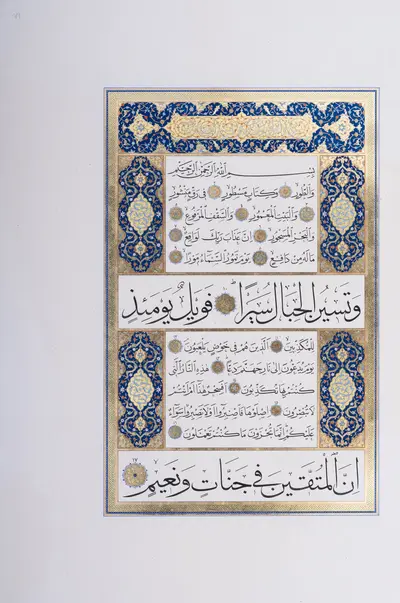 بِسْمِ اللّٰهِ الرَّحْمٰنِ الرَّحِيمِ
وَالطُّورِ وَكِتَابٍ مَسْطُورٍ فِي رَقٍّ مَنْشُورٍ
وَالْبَيْتِ الْمَعْمُورِ وَالسَّقْفِ الْمَرْفُوعِ
وَالْبَحْرِ الْمَسْجُورِ اِنَّ عَذَابَ رَبِّكَ لَوَاقِعٌ
مَا لَهُ مِنْ دَافِعٍ يَوْمَ تَمُورُ السَّمَاءُ مَوْرًا
وَتَسِيرُ الْجِبَالُ سَيْرًا فَوَيْلٌ يَوْمَئِذٍ
لِلْمُكَذِّبِينَ اَلَّذِينَ هُمْ فِي خَوْضٍ يَلْعَبُونَ
يَوْمَ يُدَعُّونَ اِلٰى نَارِ جَهَنَّمَ دَعًّا هٰذِهِ النَّارُ الَّتِي
كُنْتُمْ بِهَا تُكَذِّبُونَ اَفَسِحْرٌ هٰذَا اَمْ اَنْتُمْ
لَا تُبْصِرُونَ اِصْلَوْهَا فَاصْبِرُوا اَوْ لَا تَصْبِرُوا سَوَاءٌ
عَلَيْكُمْ اِنَّمَا تُجْزَوْنَ مَا كُنْتُمْ تَعْمَلُونَ
اِنَّ الْمُتَّقِينَ فِي جَنَّاتٍ وَنَعِيمٍ